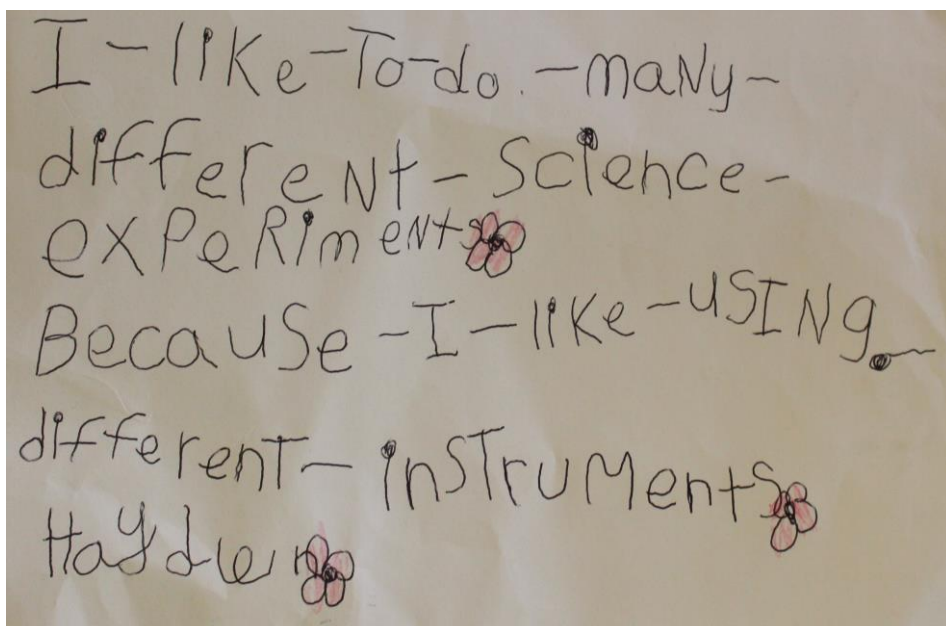 I-like-To-do.-maNy-
differeNt-Science-
exPeRimeNts
Because-I-like-uSINg.-
differenT-inSTruMents
Hayden